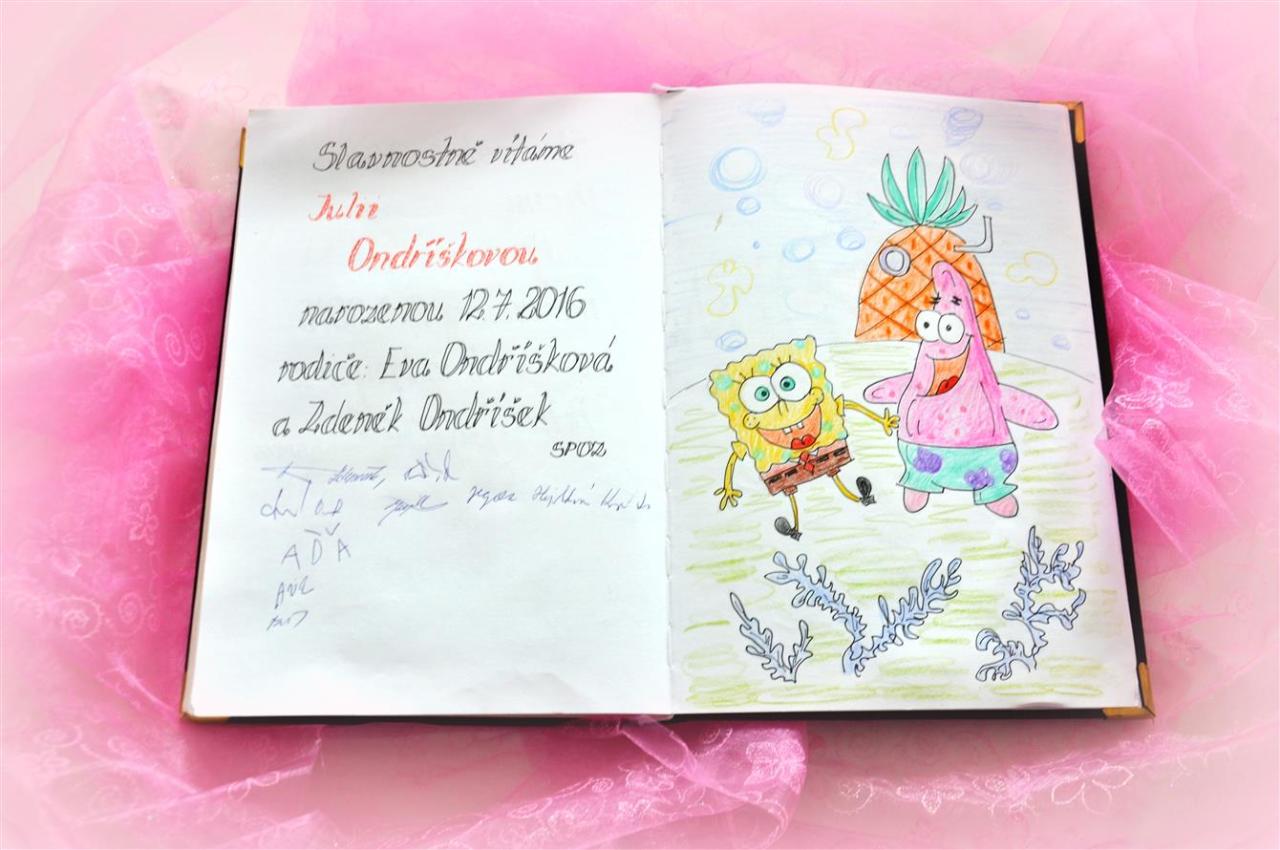 Slavnostně vítáme
Julii
Ondříškovou
narozenou 12.7.2016
rodiče: Eva Ondříšková
a Zdeněk Ondříšek
SPOZ